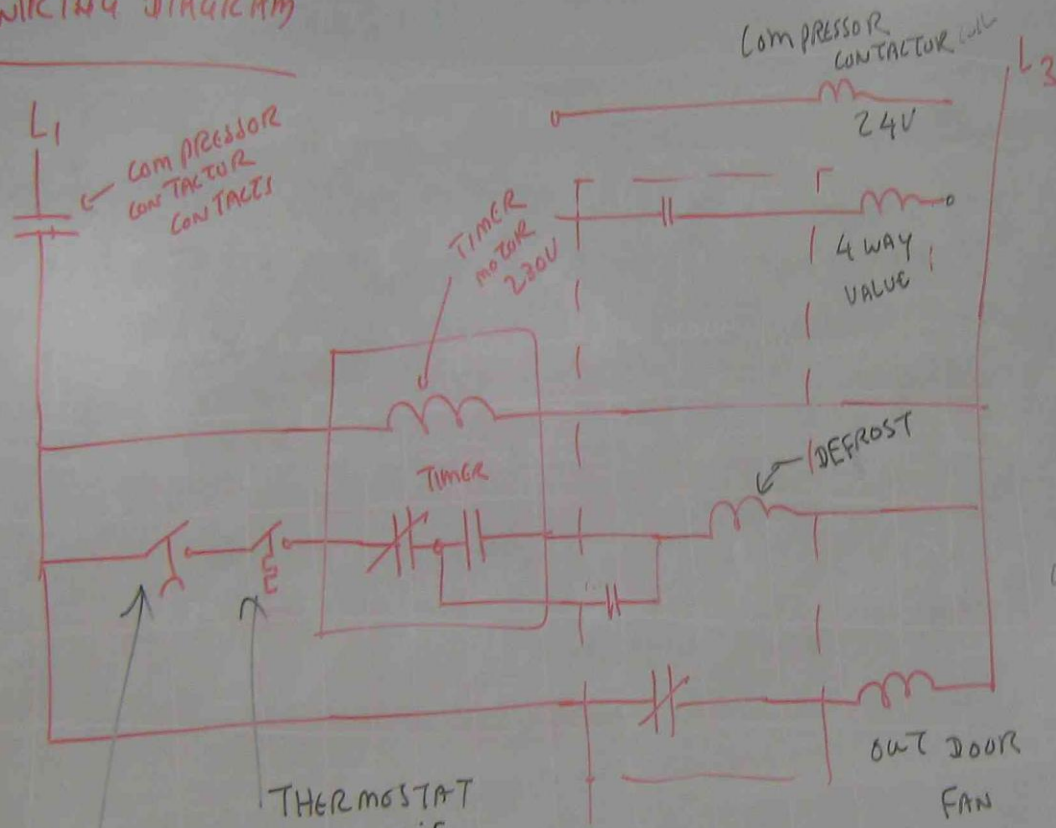 WIRING DIAGRAM
L1
COMPRESSOR
CONTACTOR
CONTACTS
COMPRESSOR
CONTACTOR COIL
24V
L3
TIMER
MOTOR
230V
4 WAY
VALUE
TIMER
DEFROST
OUT DOOR
FAN
THERMOSTAT